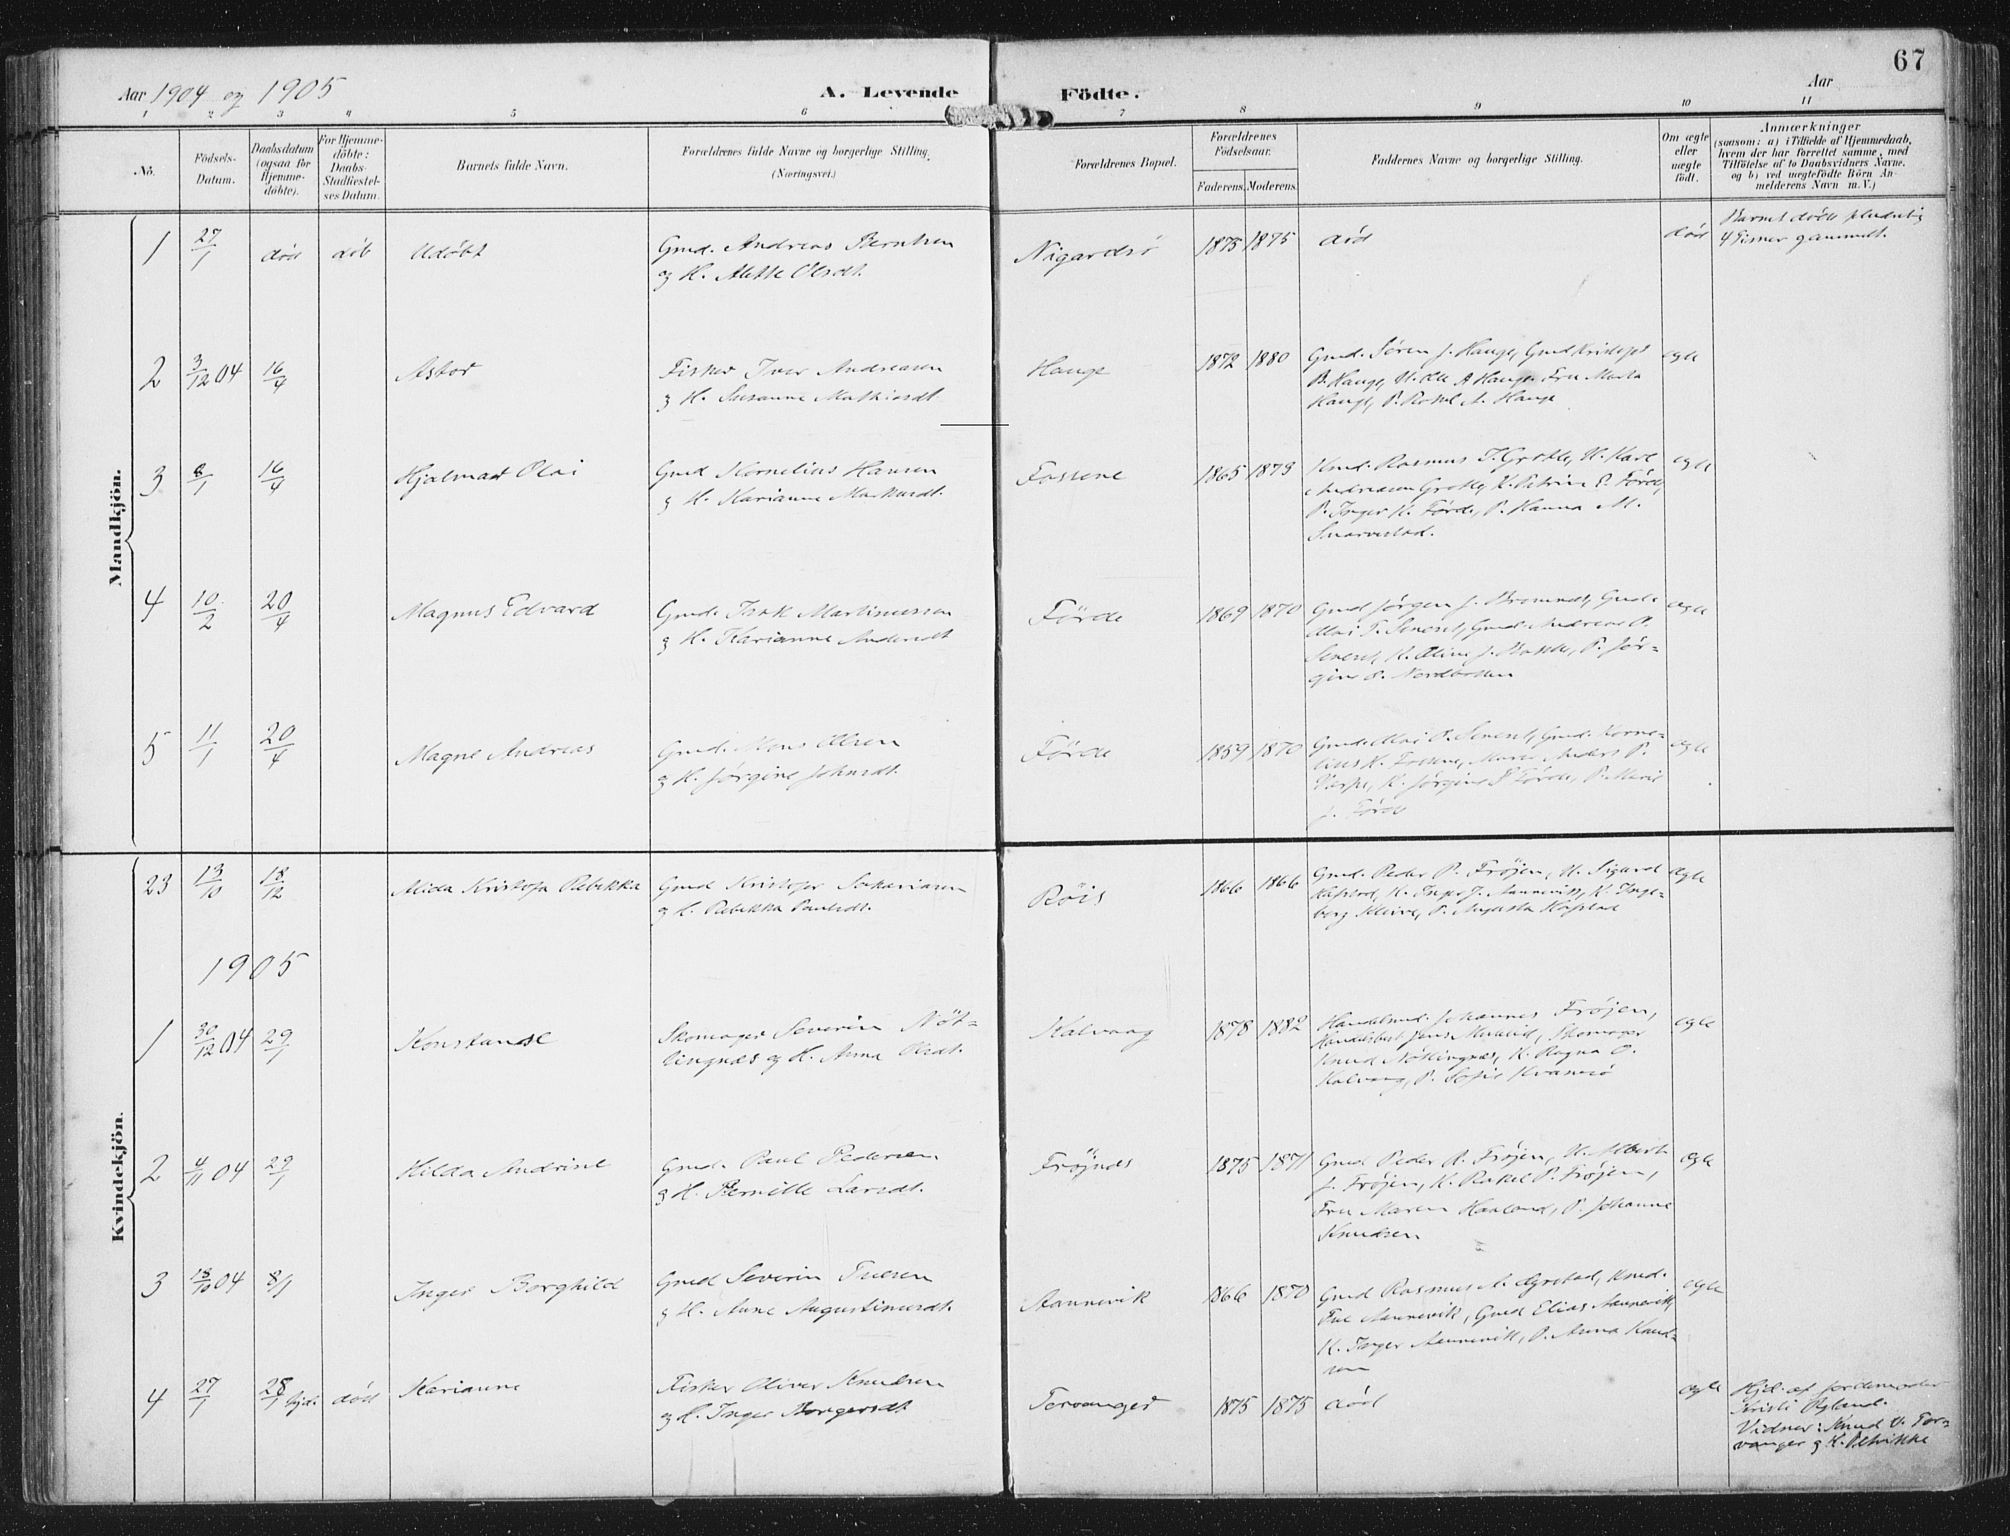 67
Aar 1904 og 1905
A. Levende Födte.
Aar
1 2 3 4 5 6 7 8 9 10 11
No.
Födsels-Datum.
Daabsdatum (ogsaa for Hjemme-döbte).
For Hjemme-döbte: Daabs-Stadfæstel-ses Datum.
Barnets fulde Navn.
Forældrenes fulde Navne og borgerlige Stilling.
(Næringsvei.)
Forældrenes Bopæl.
Forældrenes Födselsaar.
Faderens. Moderens.
Faddernes Navne og borgerlige Stilling.
Om ægte eller uægte födt.
Anmærkninger
(saasom: a) i Tilfælde af Hjemmedaab,
hvem der har forrettet samme, med
Tilföielse af to Daabsvidners Navne,
og b) ved uægtefödte Börn An-
melderens Navn m. V.)
Mandkjön.
1 27/1 död döb Udöbt
Gmd. Andreas Berntsen
og H. Alette Olsdt.
Nigardsö 1873 1875 död död
Barnet döde pludselig
4 Timer gammelt.
2 3/12 04 16/4 Astor
Fisker Iver Andreasen
og H. Susanne Mathiasdt.
Hauge 1872 1880
Gmd. Sören J. Hauge, Gmd Kristofer
Hauge, P. A. Hauge
ægte
3 8/1 16/4 Hjalmar Olai
Gmd Kornelius Hansen
og H. Karianne Markusdt.
Fossene 1865 1873
Gmd. Rasmus T. Grotle, U. Karl
Andreasen Grotle, K. Petrine P. Förde,
P. Inger K. Förde, P. Hanna M.
Smørvestad.
ægte
4 10/2 20/4 Magnus Edvard
Gmd. Isak Martinussen
og H. Karianne Andersdt
Förde 1869 1870
Gmd Jörgen J. Gmd.
Gmd. Andreas
P. Jör-
gine Nordbotten
ægte
5 11/1 20/4 Magne Andreas
Gmd. Mons Olsen
og H. Jörgine Johnsdt.
Förde 1859 1870
Gmd. Gmd. Korne-
lius H. Fossene, P.
K. Jörgine P Förde, P. Marie
J. Förde
ægte
Kvindekjön.
23 13/10 18/12 Alida Kristofa Rebekka
Gmd Kristofer Sakariasen
og H. Rebekka Paulsdt.
Röis 1866 1866
Gmd. Peder P. Fröjen, U. Sigurd
K. Inger J. Aannevik, K. Inge-
borg P. Augusta
ægte
1905
1 30/12 04 29/1 Konstanse
Skomager Severin Nöt-
lingnæs og H. Anna Olsdt.
Kalvaag 1878 1882
Handelsmd. Johannes Fröjen,
Handelsbest Jens Skomager
Knud Nötlingnæs, K. Ragna O.
Kalvaag, P. Sofie
ægte
2 4/11 04 29/1 Hilda Andrine
Gmd. Paul Pedersen
og H. Pernille Larsdt.
Fröjnæs 1875 1871
Gmd Peder R. Fröjen, U. Albert
J. Fröjen, K. Rakel P. Fröjen,
Fru Maren Haaland, P. Johanna
Knudsen
ægte
3 18/10 04 8/1 Inger Borghild
Gmd Severin Tuesen
og H. Anne Augustinusdt.
Aannevik 1866 1870
Gmd Rasmus A. Kmd.
Tue Aannevik, Gmd Elias Aannevik,
K. Inger Aannevik, P. Anna Knud-
sen
ægte
4 27/1 28/1 hjd. död Karianne
Fisker Oliver Knudsen
og H. Inger Borgersdt
Torvanger 1875 1875 död ægte
Hjd. af Jordemoder
Kristi Ryland.
Vidner: Knud O. Tor-
vanger og H. Petrikke